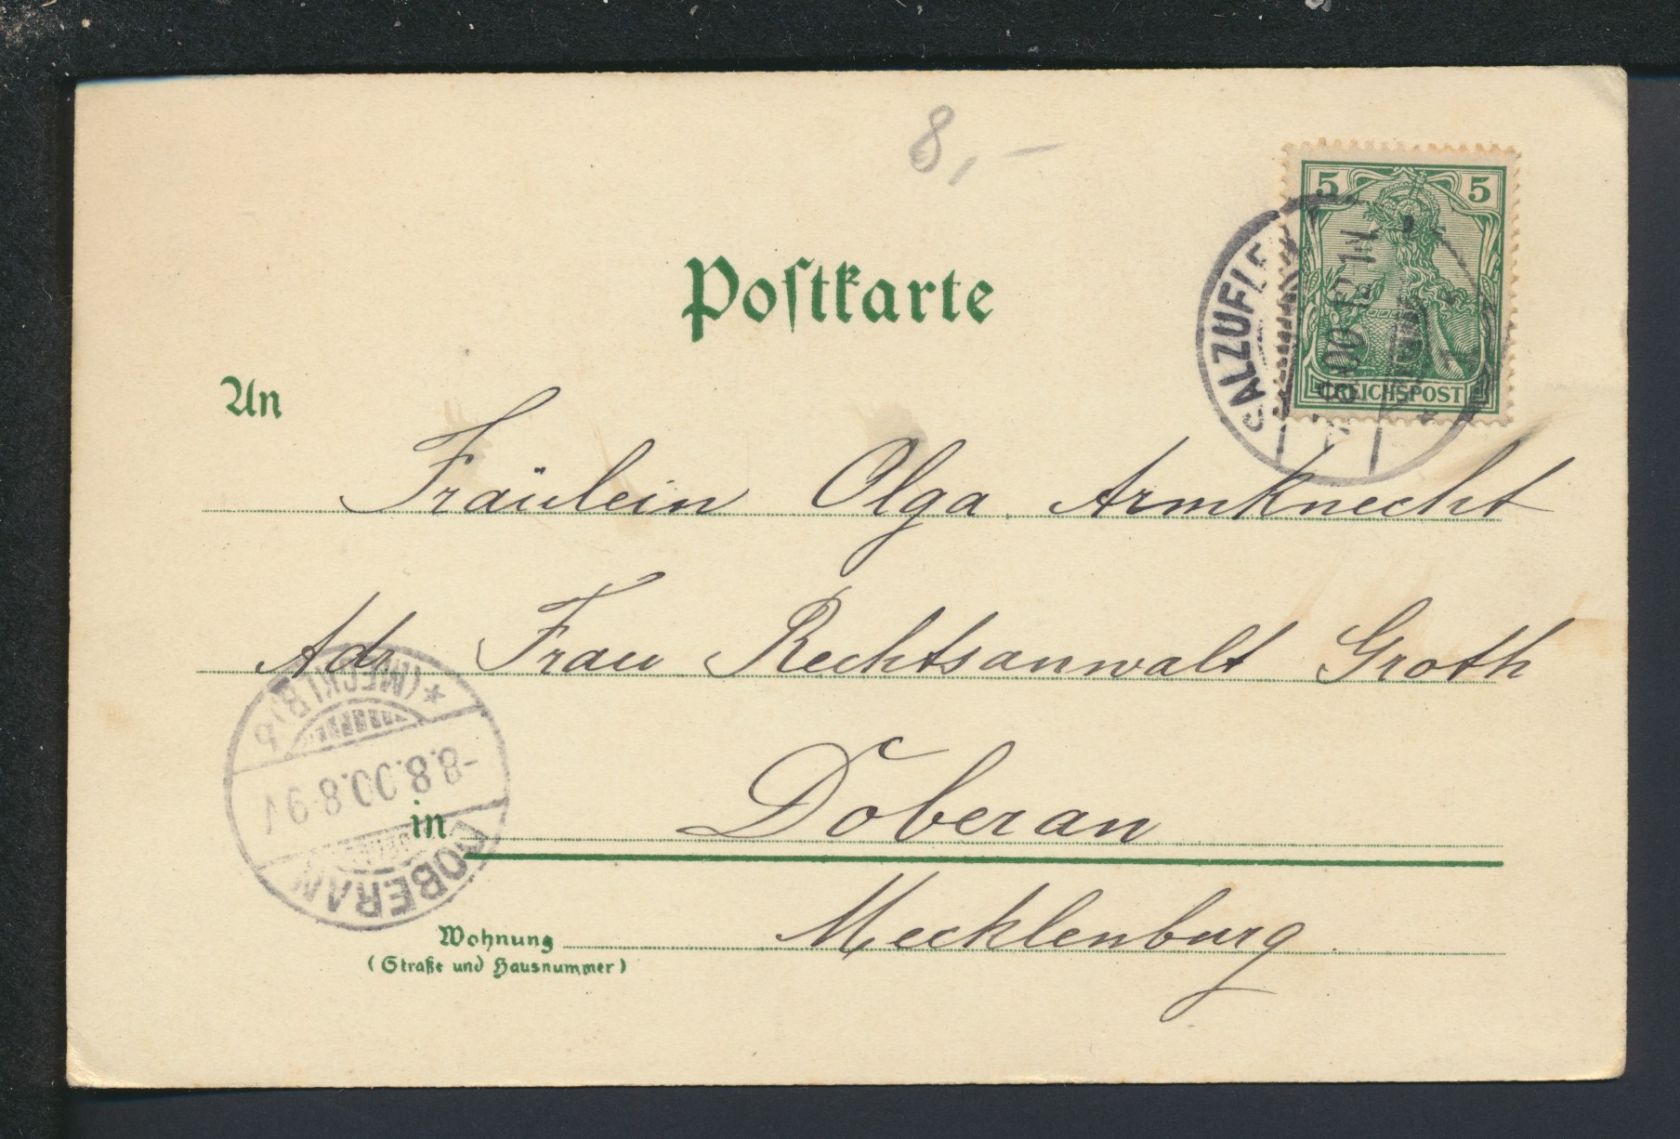 8,-
5 5
REICHSPOST
SALZUFLE
Postkarte
An
Fräulein Olga Armknecht
Adr Frau Rechtsanwalt Groth
in Doberan
Mecklenburg.
Wohnung
(Straße und Hausnummer)
DOBERAN
-8.8.00.8-9
(MECKLB)